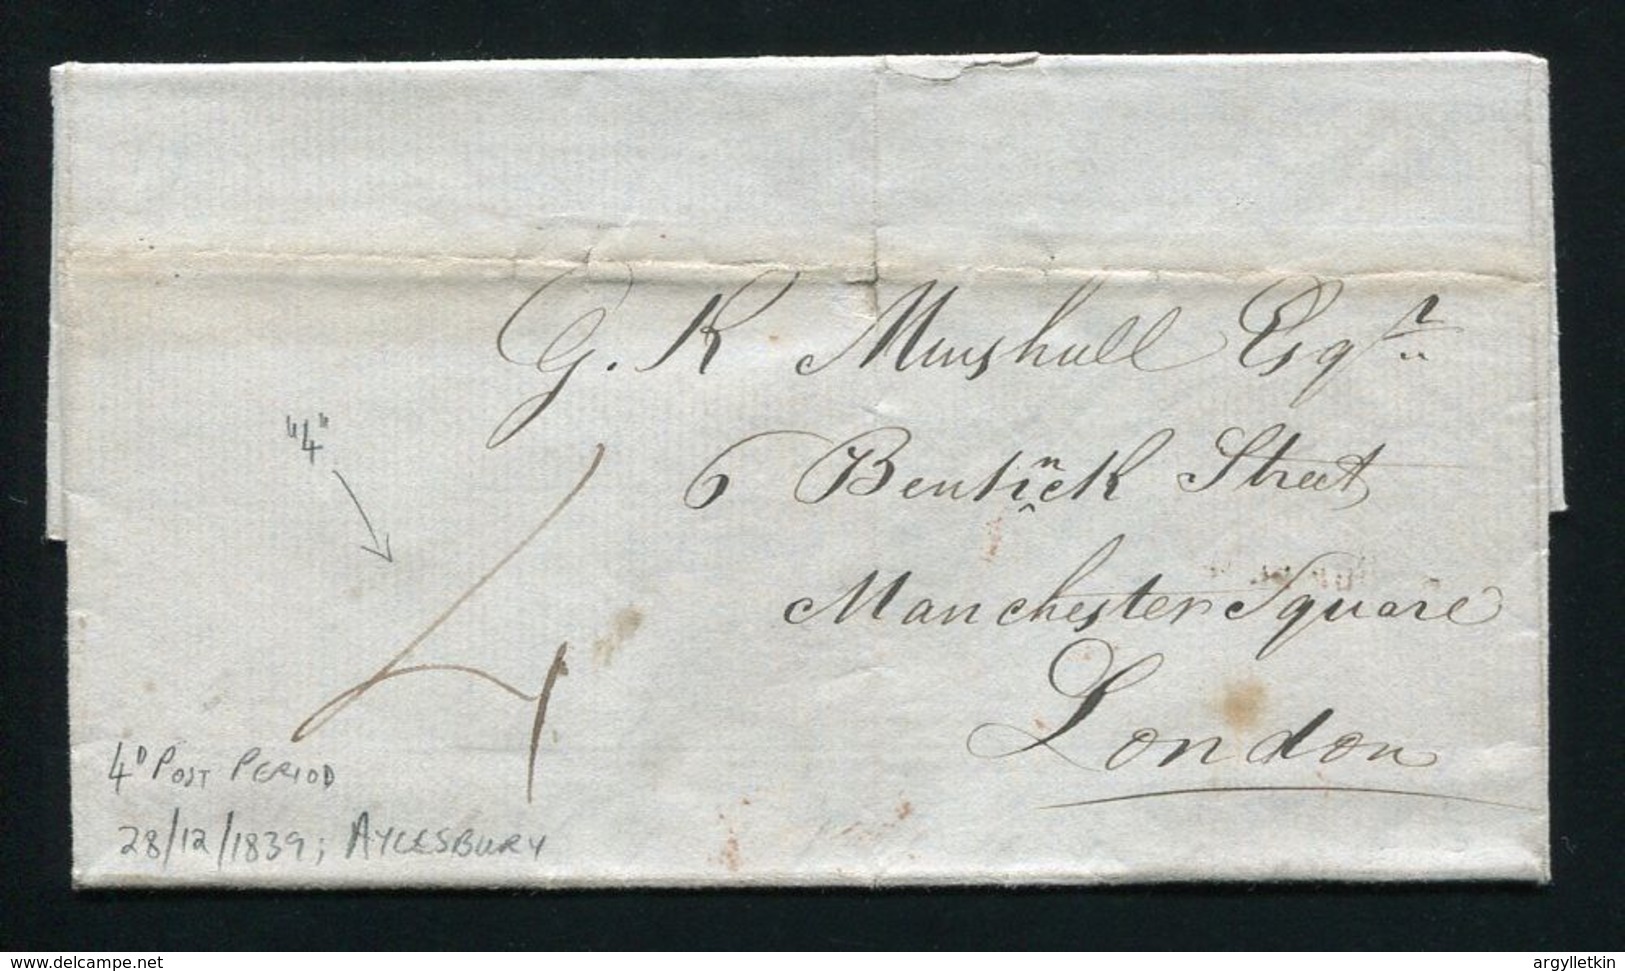 G. R Minshull Esqr
6 Bentinck Street
Manchester Square
London
"4"
4
4D POST PERIOD
28/12/1839; AYLESBURY
www.delcampe.net
argylletkin